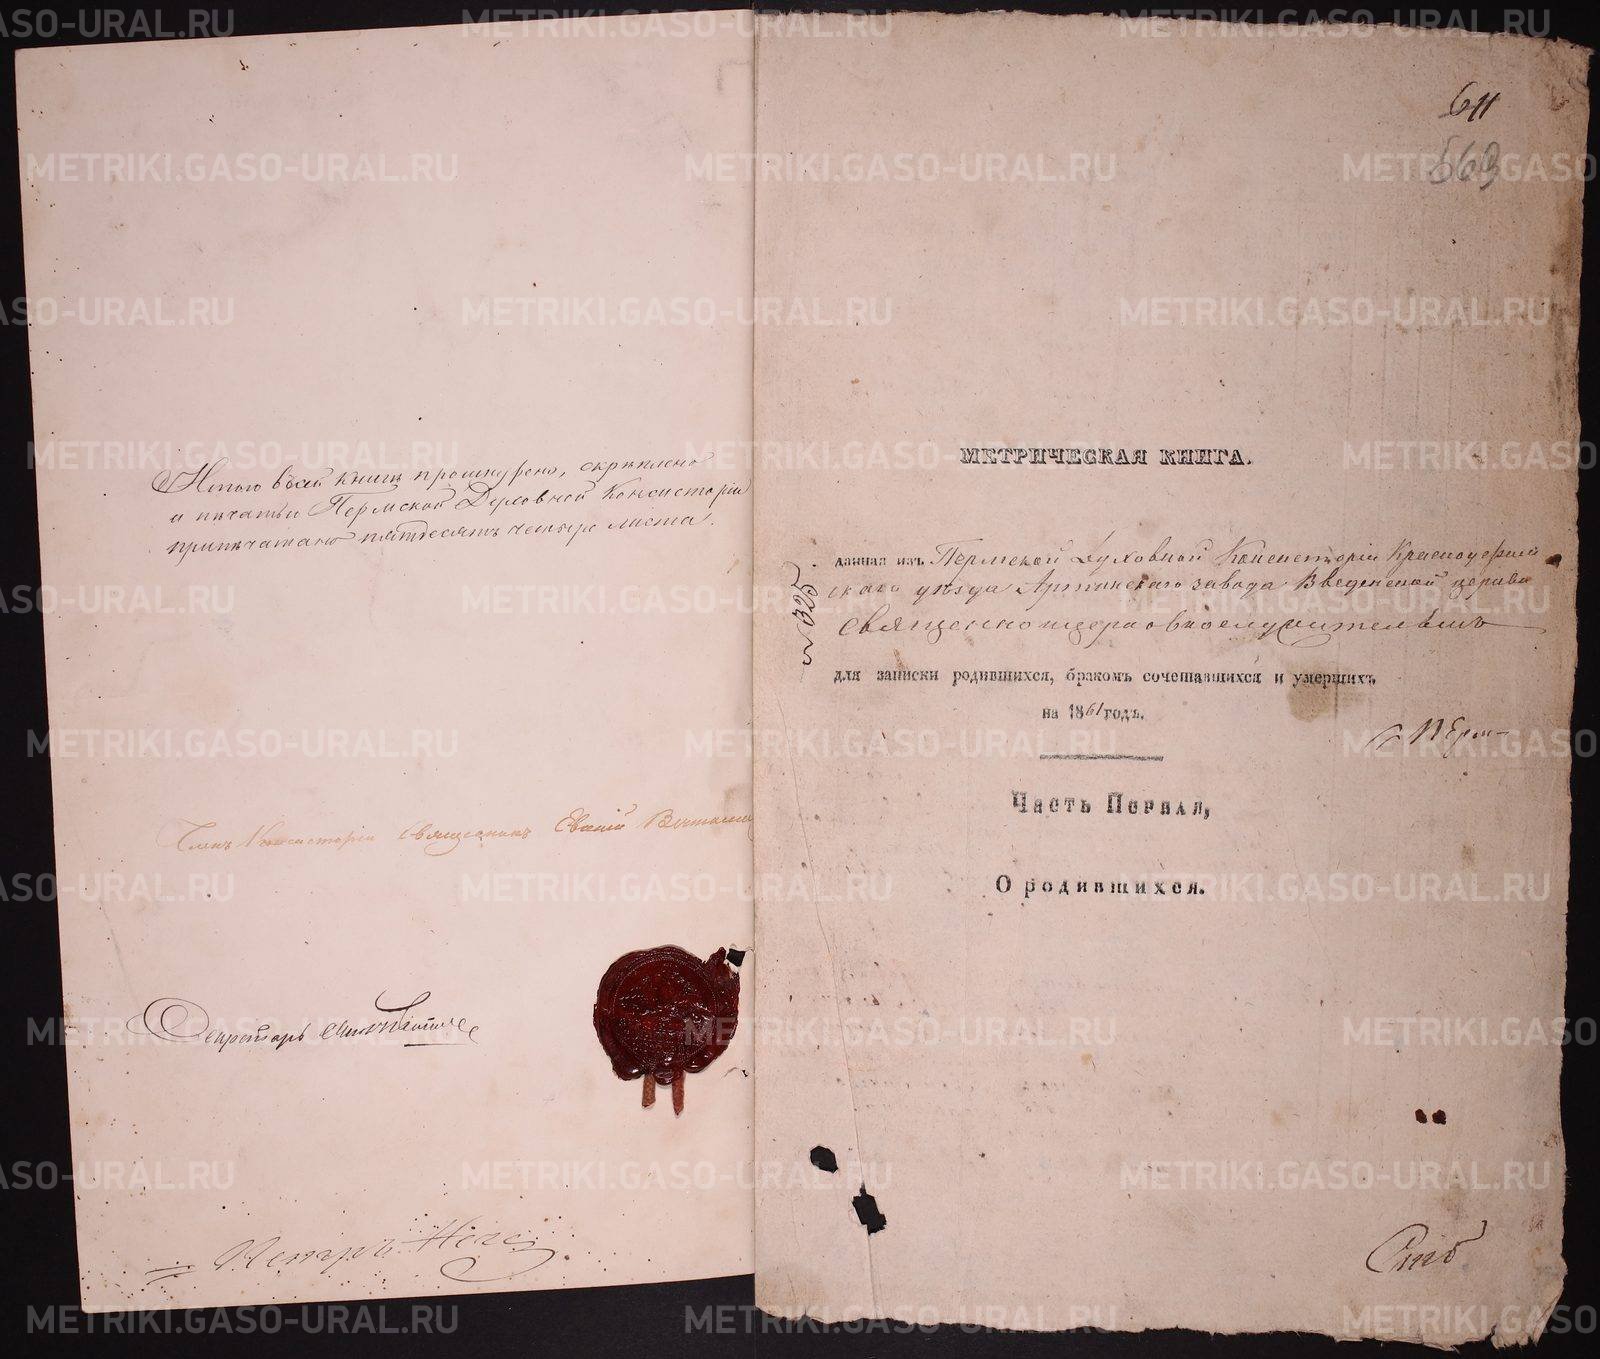 Итого въ сей книгѣ прошнурено, скрѣплено
и печатью Пермской Духовной Консисторіи
припечатано пятьдесятъ четыре листа.
Членъ Консисторіи Священникъ Евгній
Секретарь
611
563
МЕТРИЧЕСКАЯ КНИГА.
данная изъ Пермской Духовной Консисторіи Красноуфим
скаго уѣзда Артинскаго завода Введенской церкви
Священноцерковнослужителямъ
№ 325
для записки родившихся, бракомъ сочетавшихся и умершихъ
на 1861 годъ.
Часть Первая,
О родившихся.
METRIKI.GASO-URAL.RU